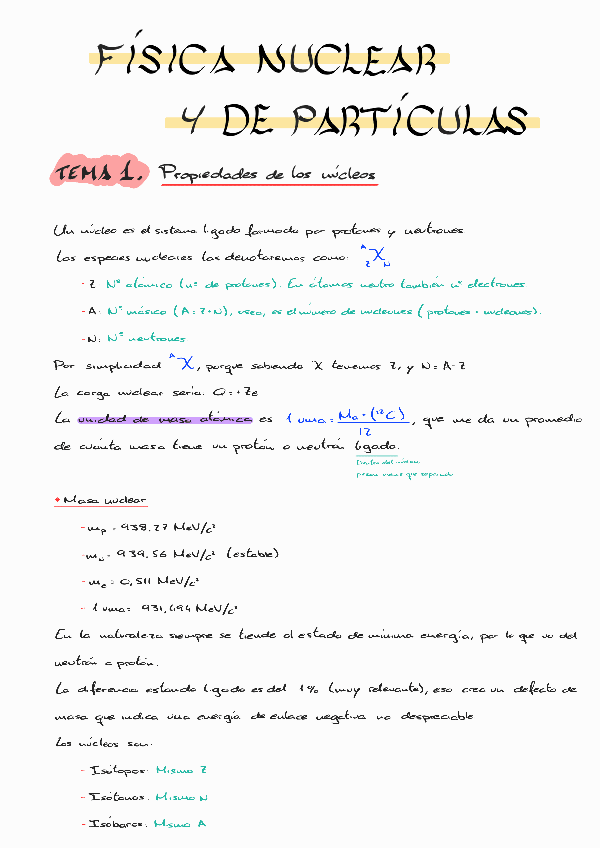 FÍSICA NUCLEAR
Y DE PARTÍCULAS
TEMA 1. Propiedades de los núcleos
Un núcleo es el sistema ligado formado por protones y neutrones
Las especies nucleares las denotaremos como: ᴬ_Z X_N
- Z: Nº atómico (nº de protones). En átomos neutro también nº electrones
- A: Nº másico (A = Z+N), o sea, es el número de nucleones (protones + nucleones).
- N: Nº neutrones
Por simplicidad ᴬX, porque sabiendo X tenemos Z, y N = A-Z
La carga nuclear sería: Q = +Ze
La unidad de masa atómica es 1 uma = Ma·(¹²C)/12, que me da un promedio
de cuánta masa tiene un protón o neutrón ligado.
Dentro del núcleo
pesan menos que separado
• Masa nuclear
- mₚ = 938.27 MeV/c²
- mₙ = 939.56 MeV/c² (estable)
- mₑ = 0,511 MeV/c²
- 1 uma = 931,494 MeV/c²
En la naturaleza siempre se tiende al estado de mínima energía, por lo que va del
neutrón a protón.
La diferencia estando ligado es del 1% (muy relevante), eso crea un defecto de
masa que indica una energía de enlace negativa no despreciable
Los núcleos son:
- Isótopos: Mismo Z
- Isótonos: Mismo N
- Isóbaros: Mismo A